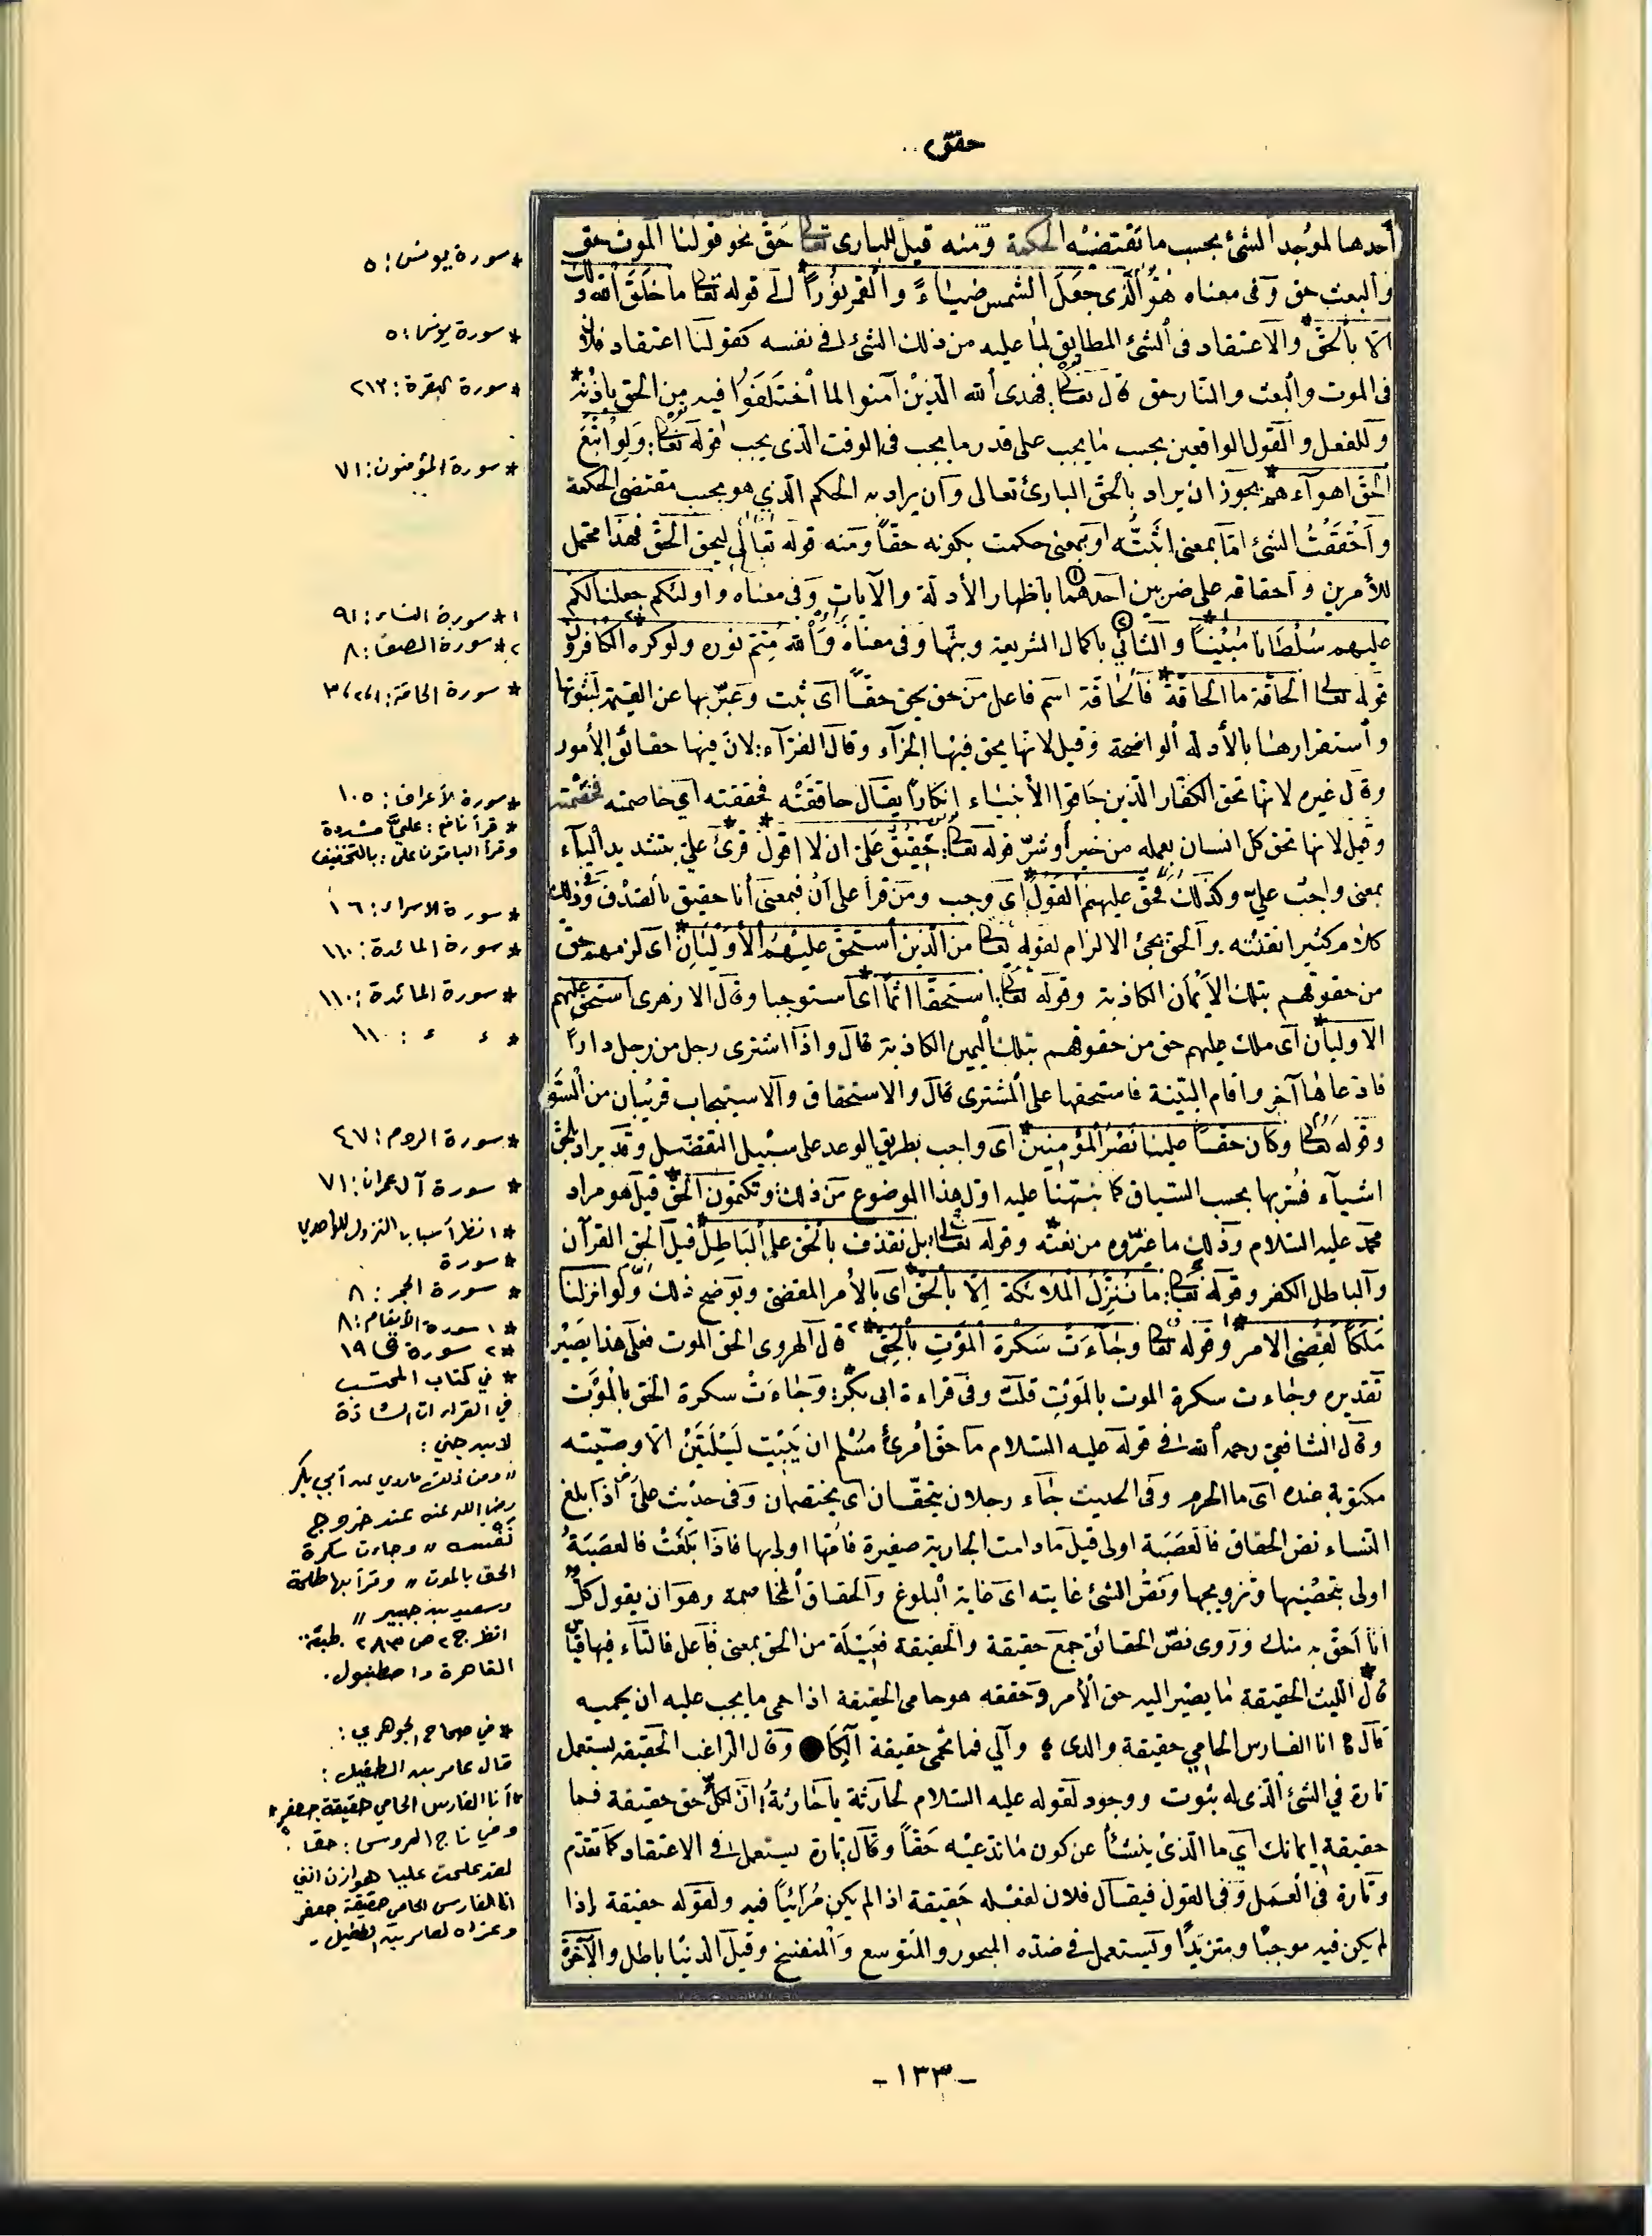 حقق
أحدها لموجد الشئ بحسب ما تقتضيه الحكمة ومنه قيل للبارى تعالى حَقّ نحو قولنا الموت حق
والبعث حق وفى معناه هُوَ الَّذى جعَلَ الشمس ضيَاءً والقمر نوُراً الى قوله تعالى ما خَلَقَ الله ذلك
الّا بالحَقّ والاعتقاد فى الشئ المطابق لما عليه من ذلك الشئ فى نفسه كقولنا اعتقاد فلان
فى الموت والبعث والنار حق قال تعالى: فهدى الله الّذين آمنوا لما اختلفوا فيه من الحق باذنه
وللفعل والقول الواقعين بحسب ما يجب على قدر ما يجب فى الوقت الّذى يجب قوله تعالى: وَلو اتّبَعَ
الحَقّ اهوآءهم يجوز ان يراد بالحَقّ البارئ تعالى وان يراد به الحكم الّذي هو بحسب مقتضى الحكمة
وأحْقَقْتُ الشئ امّا بمعنى اثبَتُّه او بمعنى حكمت بكونه حقاً ومنه قوله تعَالى ليحق الحَقّ فهذا محتمل
للأمرين واحقاقه على ضربين احدهما باظهار الأدلة والآيات وفى معناه واولئكم جعلنا لكم
عليهم سُلْطَانا مُبيْنًا والثانى باكمال الشريعة وبثّها وفى معناه وَالله مُتِمّ نوره ولو كره الكافرون
قوله تعالى الحاقة ما الحاقّة فالحاقّة اسم فاعل من حق يحق حقاً اى ثبت وعَبّر بها عن القيمة لثبوتها
واستقرارها بالأدلة الواضحة وقيل لانها يحق فيها الجزآء وقال الفرّآء: لانّ فيها حقائق الأمور
وقال غيره لانها تحق الكفّار الّذين حَاقوا الأنبيَاء إنكاراً يقَال حاققْتُه فحققته أي خاصمته فخصمته
وقيل لانها تحق كل انسان بعمله من خير أو شرّ قوله تعالى: حقيقٌ عَلىّ ان لا اقول قرئ علىّ بتشديد اليآء
بمعنى واجب علىّ وكذلك فحقّ عليهم القول اى وجب ومن قرأ على أن فبمعنى أنا حقيق بالصّدق وفى ذلك
كلام كثير اتقنته والحق يجئ الالزام لقوله تعالى من الّذين استحقّ عليهم الأوليان اى لزمهم حقّ
من حقوقهم بتلك الايمان الكاذبة وقوله تعالى: استحقّا اثماً أى استوجبا وقال الازهرى استحق عليهم
الاوليان اى ملك عليهم حق من حقوقهم بتلك اليمين الكاذبة قال واذا اشترى رجل من رجل داراً
فادعاها آخر واقام البيّنة فاستحقها على المشترى قال والاستحقاق والاستيجاب قريبان من السّوَ
وقوله تعالى وكان حقاً علينا نصْرُ المؤمنين اى واجب بطريق الوعد على سبيل التفضّل وقد يراد بالحق
اشيآء فسّر بها بحسب السّياق كما نبّهْنا عليه اوّل هذا الموضوع من ذلك: وتكتمون الحَقّ قيل هو مراد
محمد عليه السّلام وذلك ما غيّروه من نعته وقوله تعالى: بل نقذف بالحق على البَاطِل قيل الحق القرآن
والباطل الكفر وقوله تعالى: ما ننزّلُ الملائكة اِلّا بالحقّ اى بالأمر المقضىّ وتوضح ذلك ولو انزلنا
مَلَكاً لقُضِىَ الامر وقوله تعالى وجَآءَتْ سَكْرَة الموْتِ بالحقّ قال الهروى الحق الموت فعلى هذا يَصيْر
تقديره وجاءت سكرة الموت بالمَوْت قلت وفى قراءة ابى بكر: وَجَاءَتْ سكرة الحق بالموْت
وقال الشافعىّ رحمه الله فى قوله عليه السّلام ما حق امرئ مُسْلم ان يَبِيْت لَيْلَتَيْن الّا ووصيّته
مكتوبة عنده اى ما الحزم وفى الحديث جَآء رجلان يتحقّان اى يختصمان وفى حديث علىّ اذا بلغ
النّساء نصّ الحقاق فالعَصَبَة اولى قيل ما دامت الجارية صغيرة فامّها اولى بها فاذا بَلَغَتْ فالعصَبَةُ
اولى بتحصينها وتزويجها ونصّ الشئ غايته اى غاية البلوغ والحقاق المخاصمة وهو ان يقول كلّ
انا احقّ به منك وروى نصّ الحقائق جمع حقيقة والحقيقة فعَيْلَة من الحق بمعنى فاعل فالتآء فيها قياس
قال الليث الحقيقة ما يصير اليه حق الأمر وحققه هو حامى الحقيقة اذا حمى ما يجب عليه ان يحميه
قال: انا الفارس الحامي حقيقة والدى ؛ وآلي فما تحمى حقيقة آلكَا وقال الراغب الحقيقة يستعمل
تارة في الشئ الّذى له ثبوت ووجود لقوله عليه السّلام لحارثة يا حارثة: انّ لكلّ حق حقيقة فما
حقيقة إيمانك أي ما الّذى ينشأ عن كون ما تدعيْه حَقاً وقال تارة يستعمل فى الاعتقاد كما تقدّم
وتارة فى العمَل وفى القول فيقال فلان لفعْله حَقيقة اذا لم يكن مُرَائيًا فيه ولقوله حقيقة إذا
لم يكن فيه موجبًا ومتزيدًا ويستعمل فى ضدّه المبحور والمتوسع والمنفسخ وقيل الدنيَا باطل والآخرة
* سورة يونس: ٥
* سورة يونس: ٥
* سورة البقرة: ٢١٣
* سورة المؤمنون: ٧١
١* سورة النساء: ٩١
٢* سورة الصف: ٨
* سورة الحاقة: ١،٢،٣
* سورة الأعراف: ١٠٥
* قرأ نافع: عليّ مشددة
وقرأ الباقون على: بالتخفيف
* سورة الاسراء: ١٦
* سورة المائدة: ١١٠
* سورة المائدة: ١١٠
* ء ء : ١١٠
* سورة الروم: ٤٧
* سورة آل عمران: ٧١
* انظر أسباب النزول للواحدي
* سورة
* سورة الحجر: ٨
*١ سورة الأنعام: ٨
*٢ سورة ق ١٩
* في كتاب المحتسب
في القراءات الشاذة
لابن جني:
" ومن ذلك ما روي عن أبي بكر
رضي الله عنه عند خروج
نَفْسه " وجاءت سكرة
الحق بالموت " وقرأ بها طلحة
وسعيد بن جبير "
انظر ج٢ ص ٢٨٣ . طبعة..
القاهرة واصطنبول.
* في صحاح الجوهري:
قال عامر بن الطفيل:
* أنا الفارس الحامي حقيقة جعفر *
وفي تاج العروس: حقا
لقد علمت عليا هوازن انني
انا الفارس الحامي حقيقة جعفر
وعزاه لعامر بن الطفيل.
- ١٣٣ -